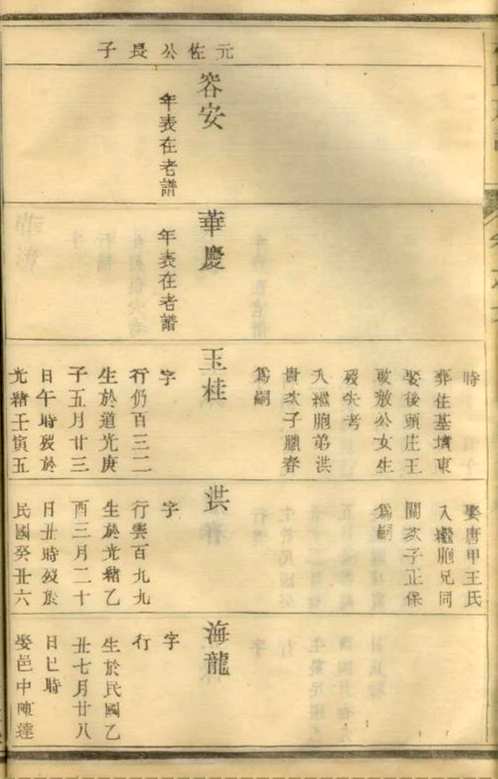 元佐公長子
容安
年表在老譜
華慶
年表在老譜
時
葬住基墳東
娶後頭庄王
敖公女生
歿失考
入繼胞弟洪
貴次子春
爲嗣
玉桂
字
行仍百三二
生於道光庚
子五月廿三
日午時歿於
光緒壬寅五
娶唐甲王氏
入繼胞兄同
關次子正保
爲嗣
洪
字
行雲百九九
生於光緒乙
酉三月二十
日丑時歿於
民國癸丑六
海龍
字
行
生於民國乙
丑七月廿八
日巳時
娶邑中陳達